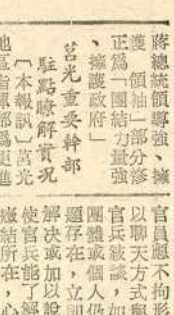 蔣總統領導強、擁
護　領袖」部分修
正為「團結力量強
、擁護政府」
莒光重要幹部
駐點瞭解實況
〔本報訊〕莒光
地區指揮部為更進
官員應不拘形
以聊天方式與
官兵談,如
團體或個人仍
題存在,立
解決或加以說
使官兵能了解
癥結所在,心